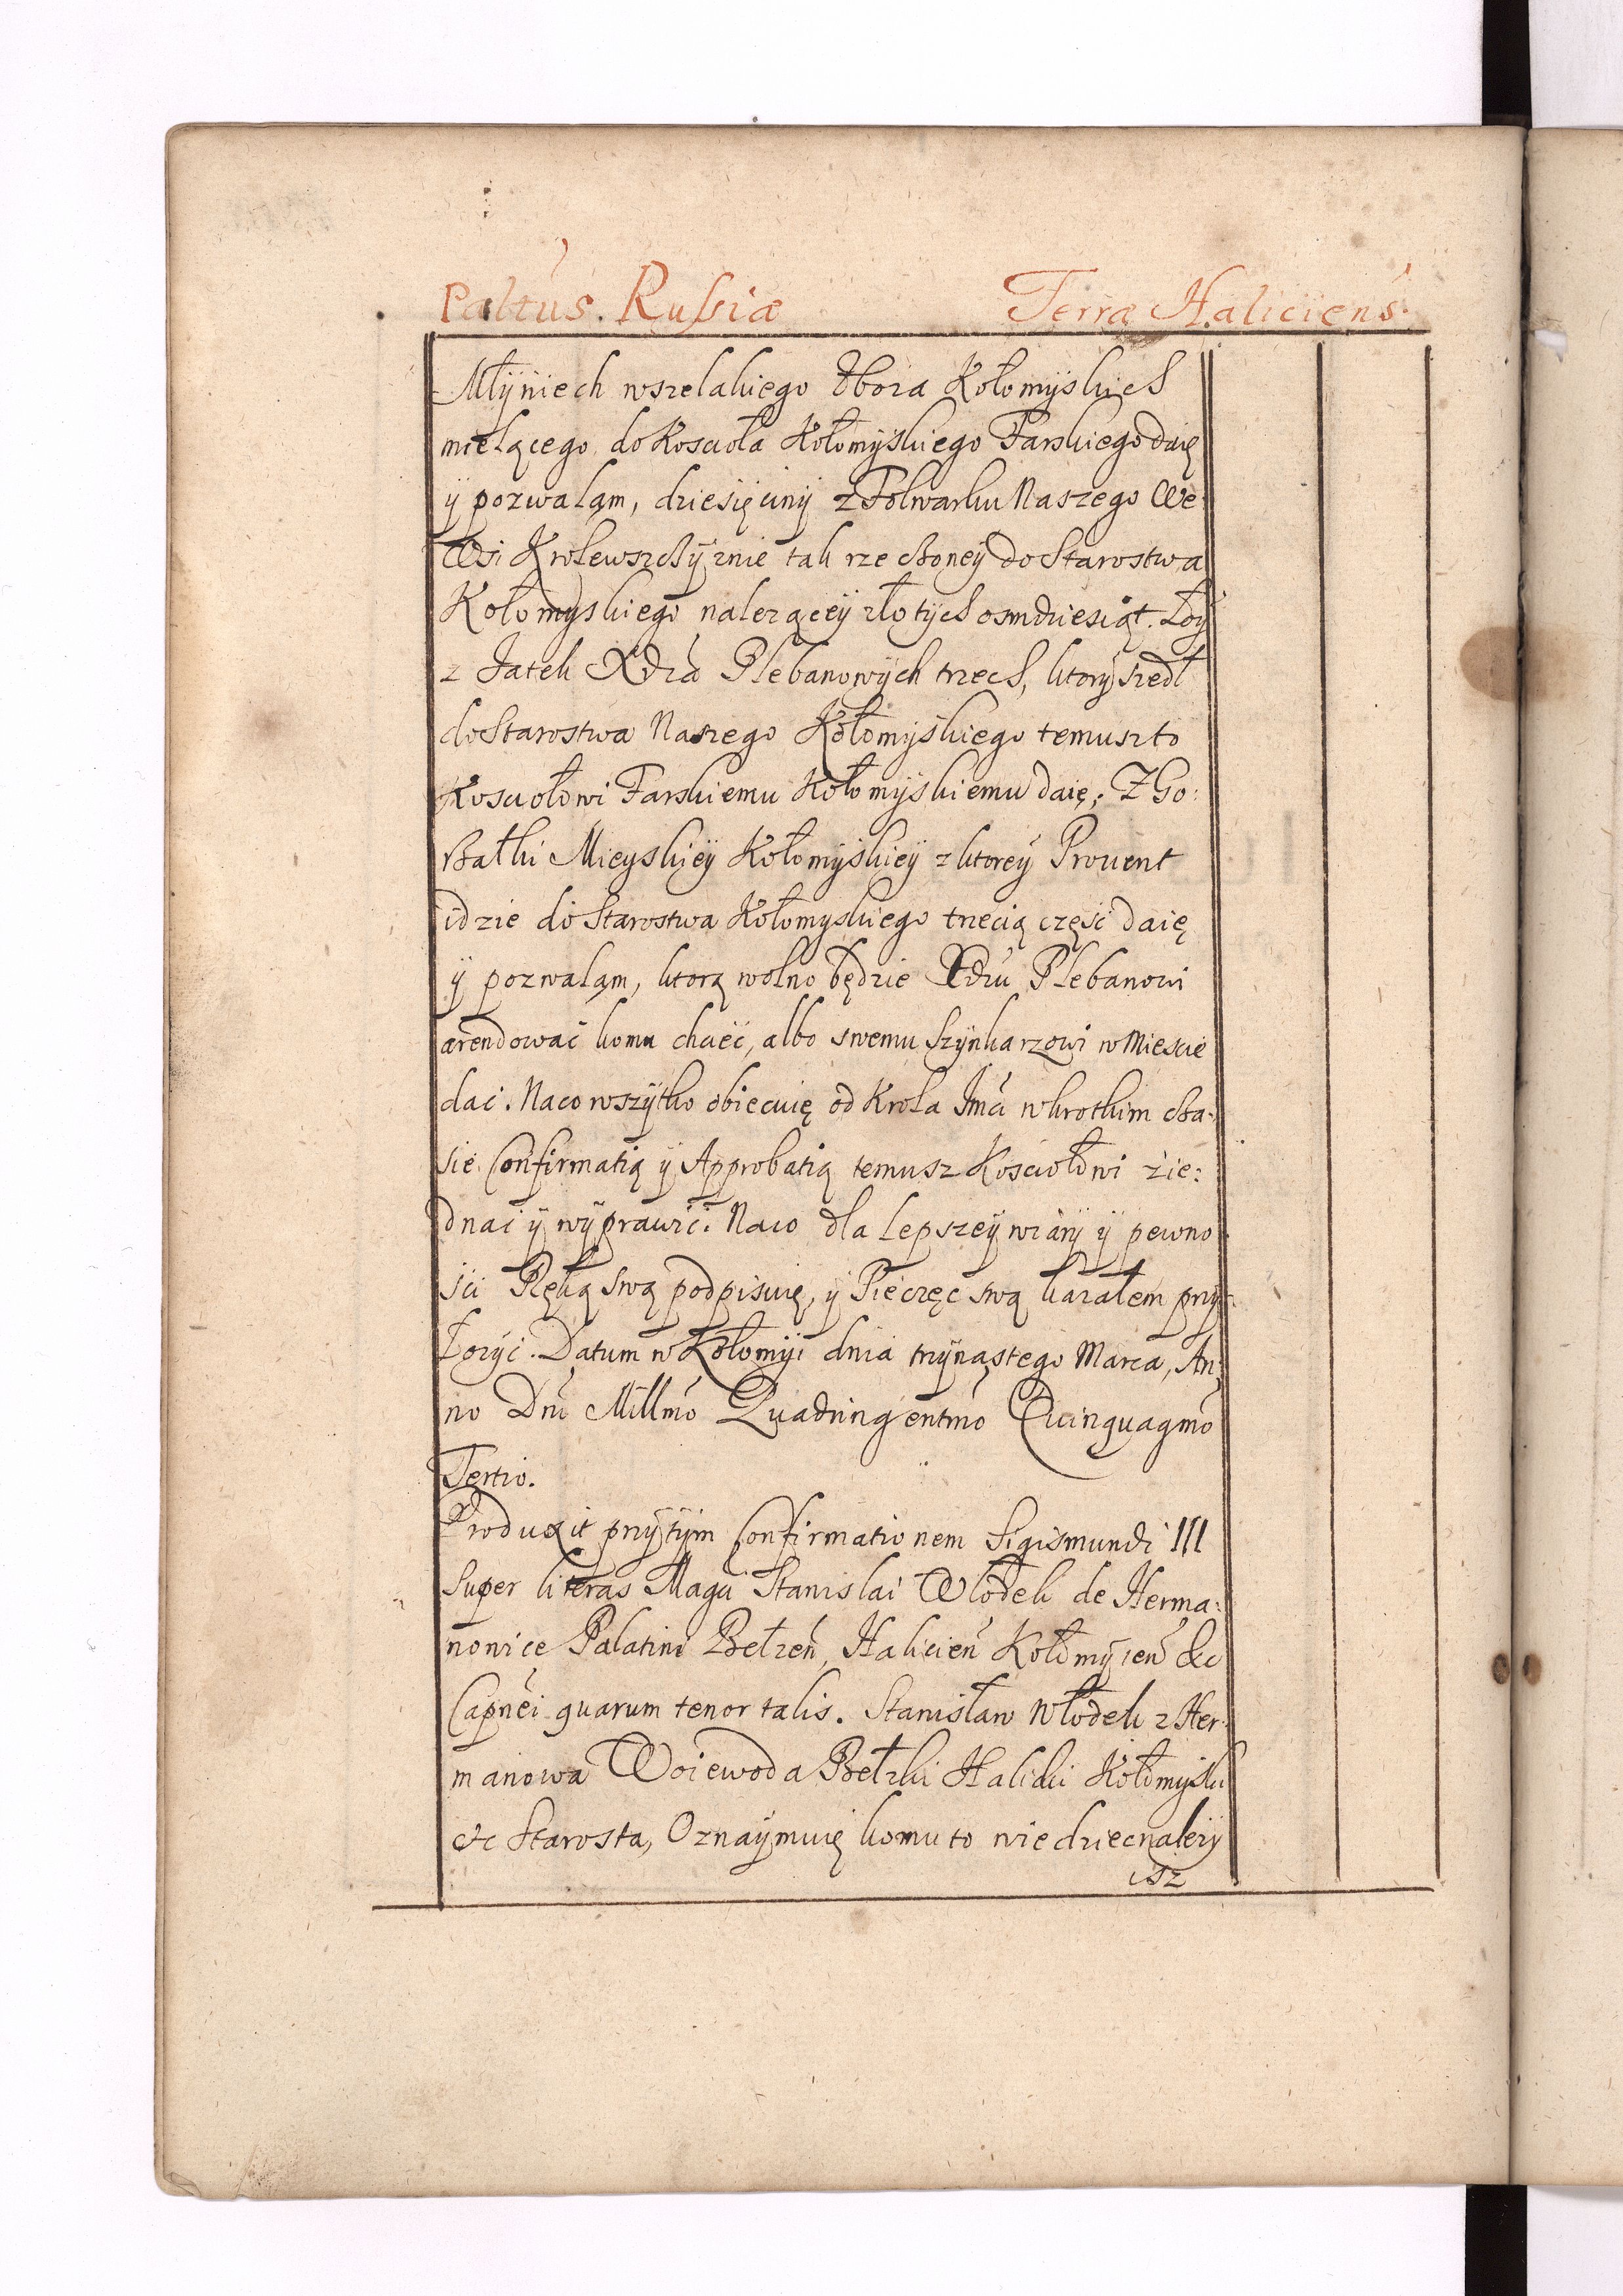 Paltus. Rusiæ Terræ Haliciens.
Młyniech wszelakiego Zboza Kołomyskich
mielącego do Koscioła Kołomyskiego Farskiego daię
y pozwalam, dziesięciny z Folwarku Naszego We
Wsi Krolewszczyznie tak rzeczoney do Starostwa
Kołomyskiego nalezącey złotych osmdziesiąt. Łoy
z Jatek Xdza Plebanowych trzech, ktory szedł
do Starostwa Naszego Kołomyskiego temuszto
Kosciołowi Farskiemu Kołomyskiemu daię; Z Go:
rzałki Mieyskiey Kołomyskiey z ktorey Prouent
idzie do Starostwa Kołomyskiego trzecią część daię
y pozwalam, ktorą wolno będzie Xdzu Plebanowi
arendowac komu chcieć, albo swemu Szynkarzowi w Miescie
dac. Naco wszytko obiecuię od Krola Jmci w krotkim cza-
sie Confirmatią y Approbatią temusz Kosciołowi zie:
dnac y wyprawic. Naco dla lepszey wiary y pewno
sci Ręką swą podpisuię, y Pieczęc swą kazałem przy-
łozyc. Datum w Kołomyi dnia trzynastego Marca, An:
no Dni Millmo Quadringentmo Quinquagmo
Tertio.
Produxit przytym Confirmationem Sigismundi III
Super literas Magci Stanislai Włodek de Herma:
nowice Palatini Bełzen, Halicien Kołomyien &c
Capnei quarum tenor talis. Stanisław Włodek z Her-
manowa Woiewoda Bełzki Halicki Kołomyski
etc Starosta, Oznaymuię komu to wiedziec nalezy
isz